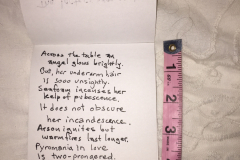 Across the table an
angel glows brightly.
But, her underarm hair
is sooo unsightly.
incenses her
kelp of pubescence.
It does not obscure
her incandescence.
Arson ignites but
warm fires last longer.
Pyromania in love
is two-pronged.
1
2
3